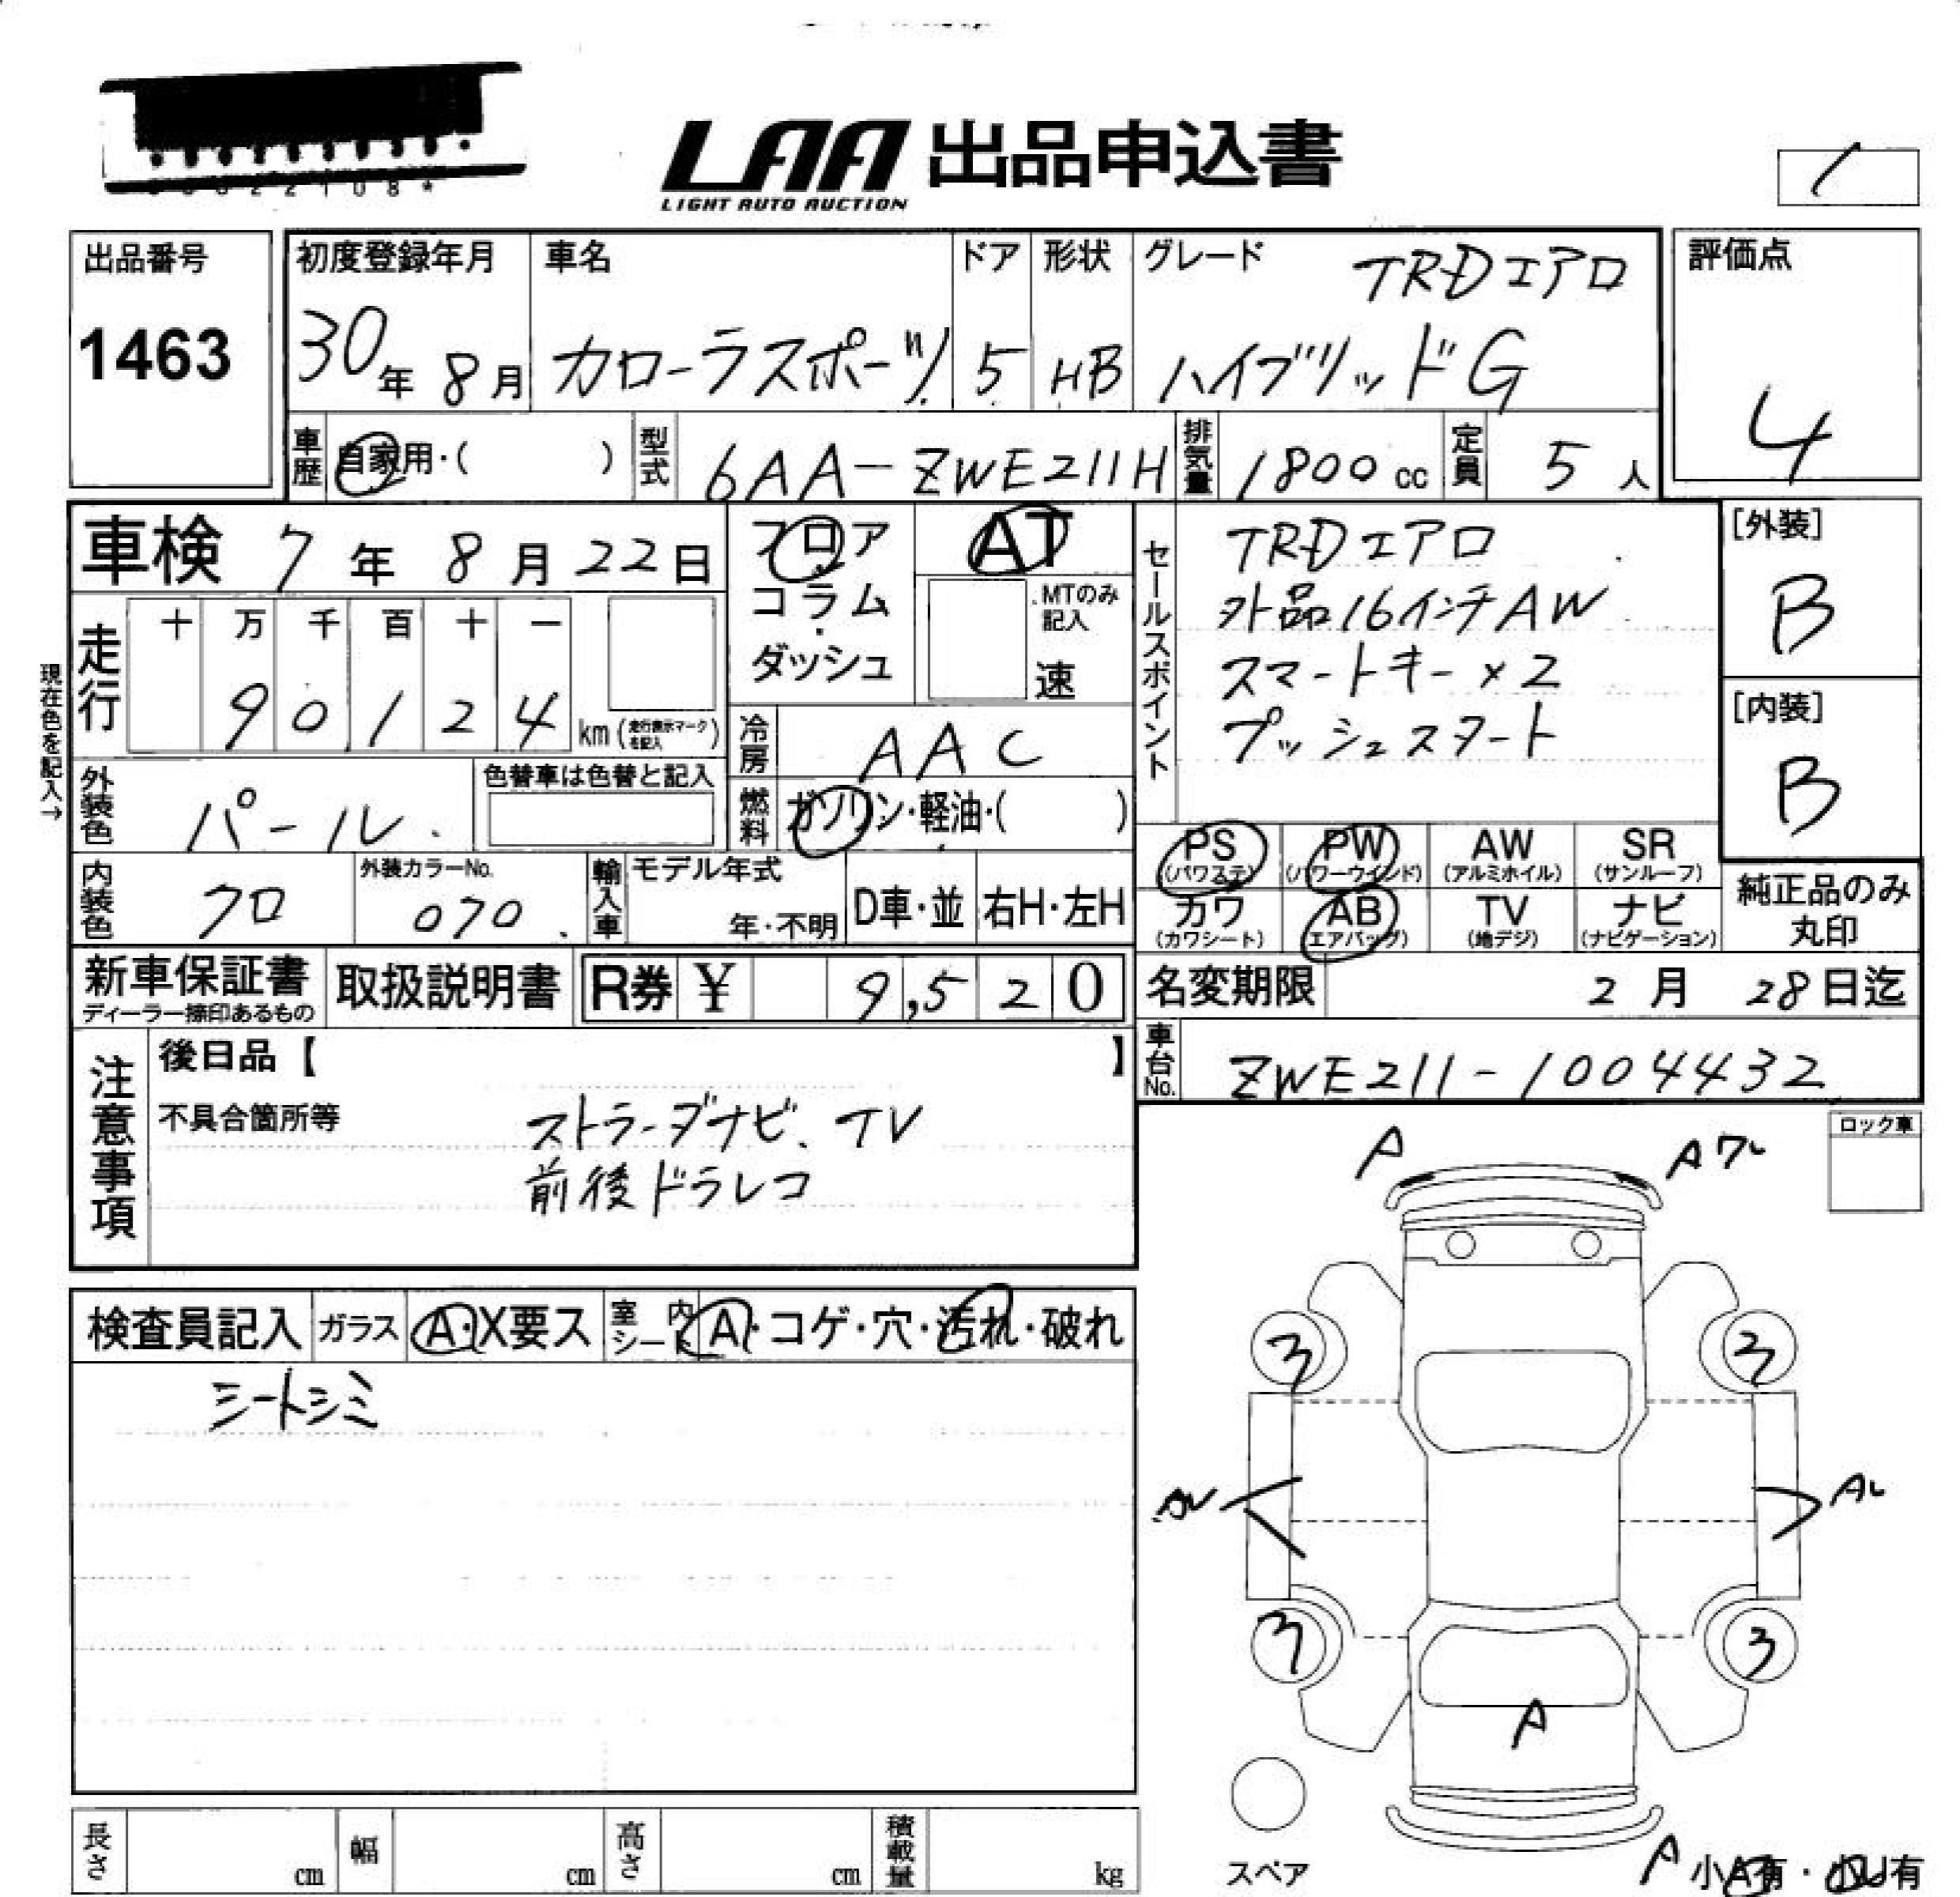 LAA 出品申込書
LIGHT AUTO AUCTION
出品番号
1463
初度登録年月
30年 8月
車名
カローラスポーツ
ドア
5
形状
HB
グレード
TRDエアロ
ハイブリッドG
評価点
4
車歴
自家用・( )
型式
6AA-ZWE211H
排気量
1800 cc
定員
5 人
車検 7年 8月 22日
フロア
コラム
ダッシュ
AT
MTのみ
記入
速
セールスポイント
TRDエアロ
外品16インチAW
スマートキー×2
プッシュスタート
[外装]
B
[内装]
B
現在色を記入→
走行
十 万 千 百 十 一
9 0 1 2 4 km (走行表示マークを記入)
冷房
AAC
外装色
パール
色替車は色替と記入
燃料
ガソリン・軽油・( )
PS
(パワステ)
PW
(パワーウインド)
AW
(アルミホイル)
SR
(サンルーフ)
カワ
(カワシート)
AB
(エアバッグ)
TV
(地デジ)
ナビ
(ナビゲーション)
純正品のみ
丸印
内装色
クロ
外装カラーNo.
070
輸入車
モデル年式
年・不明
D車・並
右H・左H
新車保証書
ディーラー捺印あるもの
取扱説明書
R券 ¥ 9,520
名変期限 2月 28日迄
車台No.
ZWE211-1004432
注意事項
後日品【 】
不具合箇所等
ストラーダナビ、TV
前後ドラレコ
ロック車
A
Aワレ
検査員記入
ガラス
A・X要ス
室内シート
A・コゲ・穴・汚れ・破れ
シートシミ
3
3
AU
AU
3
3
A
スペア
A
小A有・小U有
長さ cm
幅 cm
高さ cm
積載量 kg